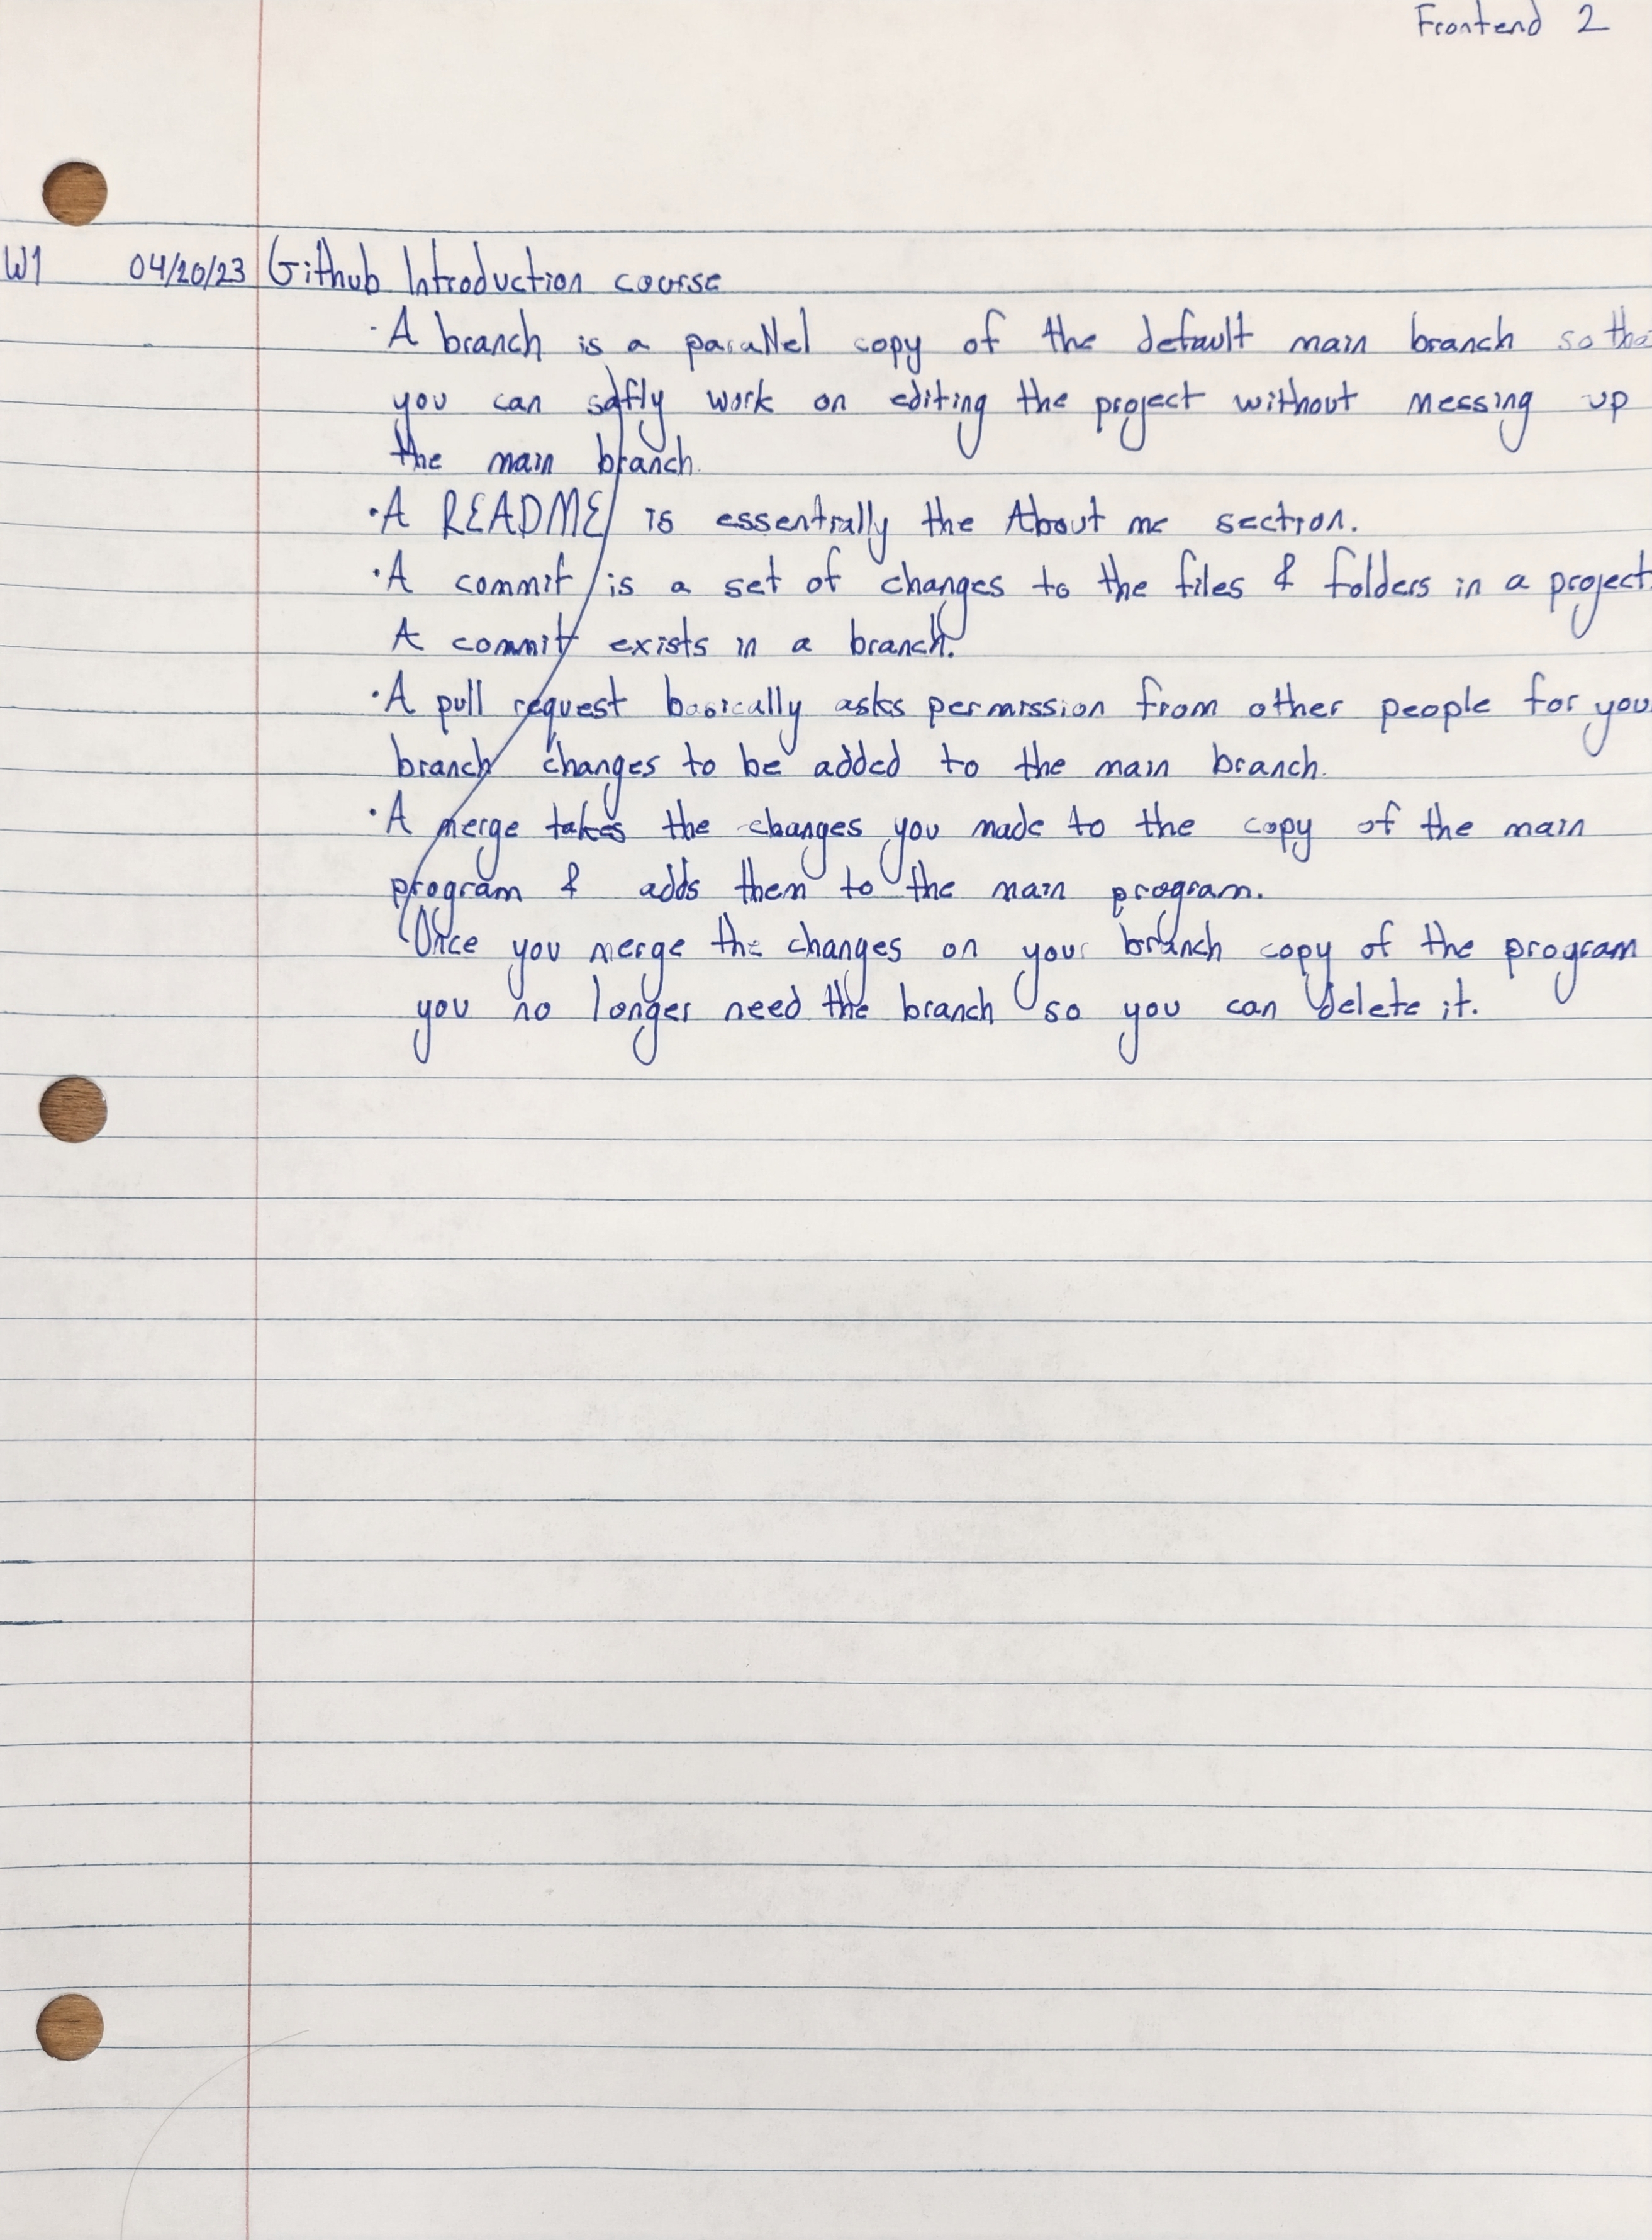 Frontend 2
W1 04/20/23 Github Introduction course
· A branch is a parallel copy of the default main branch so tha
you can safly work on editing the project without messing up
the main branch.
· A README is essentially the About me section.
· A commit is a set of changes to the files & folders in a project.
A commit exists in a branch.
· A pull request basically asks permission from other people for you
branch changes to be added to the main branch.
· A merge takes the changes you made to the copy of the main
program & adds them to the main program.
Once you merge the changes on your branch copy of the program
you no longer need the branch so you can delete it.